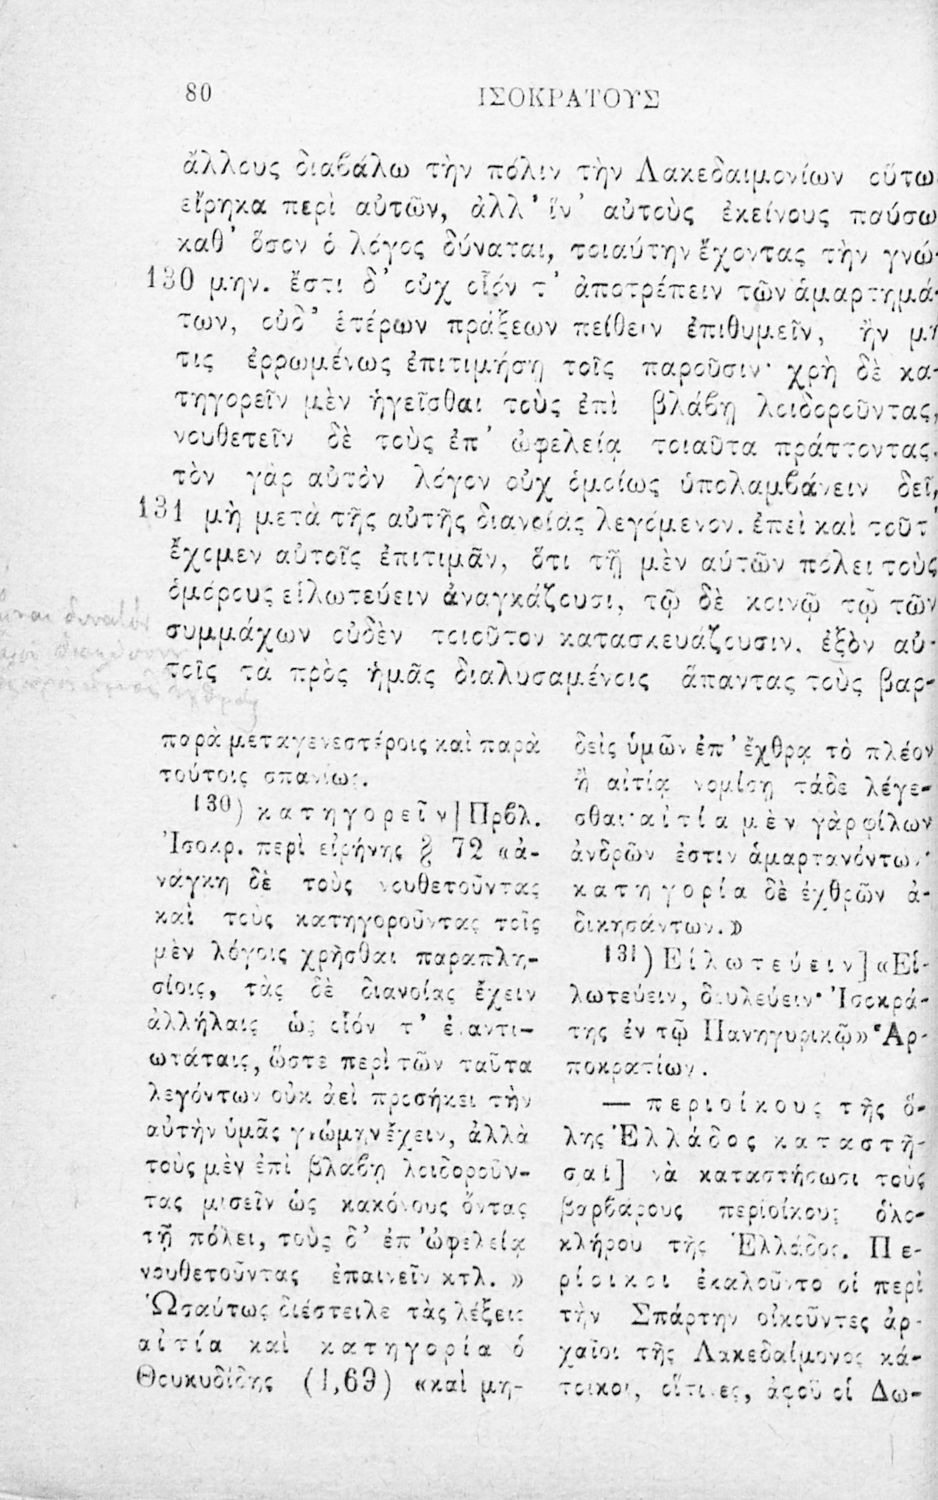 80
ΙΣΟΚΡΑΤΟΥΣ
ἄλλους διαβάλω τὴν πόλιν τὴν Λακεδαιμονίων οὕτω
εἴρηκα περὶ αὐτῶν, ἀλλ' ἵν' αὐτοὺς ἐκείνους παύσω
καθ' ὅσον ὁ λόγος δύναται, τοιαύτην ἔχοντας τὴν γνώ-
130 μην. ἔστι δ' οὐχ οἷόν τ' ἀποτρέπειν τῶν ἁμαρτημά-
των, οὐδ' ἑτέρων πράξεων πείθειν ἐπιθυμεῖν, ἢν μή
τις ἐρρωμένως ἐπιτιμήσῃ τοῖς παροῦσιν· χρὴ δὲ κα-
τηγορεῖν μὲν ἡγεῖσθαι τοὺς ἐπὶ βλάβῃ λοιδοροῦντας,
νουθετεῖν δὲ τοὺς ἐπ' ὠφελείᾳ τοιαῦτα πράττοντας.
τὸν γὰρ αὐτὸν λόγον οὐχ ὁμοίως ὑπολαμβάνειν δεῖ,
131 μὴ μετὰ τῆς αὐτῆς διανοίας λεγόμενον. ἐπεὶ καὶ τοῦτ'
ἔχομεν αὐτοῖς ἐπιτιμᾶν, ὅτι τῇ μὲν αὑτῶν πόλει τοὺς
ὁμόρους εἱλωτεύειν ἀναγκάζουσι, τῷ δὲ κοινῷ τῷ τῶν
συμμάχων οὐδὲν τοιοῦτον κατασκευάζουσιν, ἐξὸν αὐ-
τοῖς τὰ πρὸς ἡμᾶς διαλυσαμένοις ἅπαντας τοὺς βαρ-
παρὰ μεταγενεστέροις καὶ παρὰ
τούτοις σπανίως.
130) κατηγορεῖν] Πρβλ.
Ἰσοκρ. περὶ εἰρήνης § 72 «ἀ-
νάγκη δὲ τοὺς νουθετοῦντας
καὶ τοὺς κατηγοροῦντας τοῖς
μὲν λόγοις χρῆσθαι παραπλη-
σίοις, τὰς δὲ διανοίας ἔχειν
ἀλλήλαις ὡς οἷόν τ' ἐναντι-
ωτάταις, ὥστε περὶ τῶν ταῦτα
λεγόντων οὐκ ἀεὶ προσήκει τὴν
αὐτὴν ὑμᾶς γνώμην ἔχειν, ἀλλὰ
τοὺς μὲν ἐπὶ βλάβῃ λοιδοροῦν-
τας μισεῖν ὡς κακόνους ὄντας
τῇ πόλει, τοὺς δ' ἐπ' ὠφελείᾳ
νουθετοῦντας ἐπαινεῖν κτλ.»
Ὡσαύτως διέστειλε τὰς λέξεις
αἰτία καὶ κατηγορία ὁ
Θουκυδίδης (1,69) «καὶ μη-
δεὶς ὑμῶν ἐπ' ἔχθρᾳ τὸ πλέον
ἢ αἰτίᾳ νομίσῃ τάδε λέγε-
σθαι· αἰτία μὲν γὰρ φίλων
ἀνδρῶν ἐστιν ἁμαρτανόντων·
κατηγορία δὲ ἐχθρῶν ἀ-
δικησάντων.»
131) Εἱλωτεύειν] «Εἱ-
λωτεύειν, δουλεύειν· Ἰσοκρά-
της ἐν τῷ Πανηγυρικῷ» Ἁρ-
ποκρατίων.
— περιοίκους τῆς ὅ-
λης Ἑλλάδος καταστῆ-
σαι] νὰ καταστήσωσι τοὺς
βαρβάρους περιοίκους ὁλο-
κλήρου τῆς Ἑλλάδος. Πε-
ρίοικοι ἐκαλοῦντο οἱ περὶ
τὴν Σπάρτην οἰκοῦντες ἀρ-
χαῖοι τῆς Λακεδαίμονος κά-
τοικοι, οἵτινες, ἀφοῦ οἱ Δω-